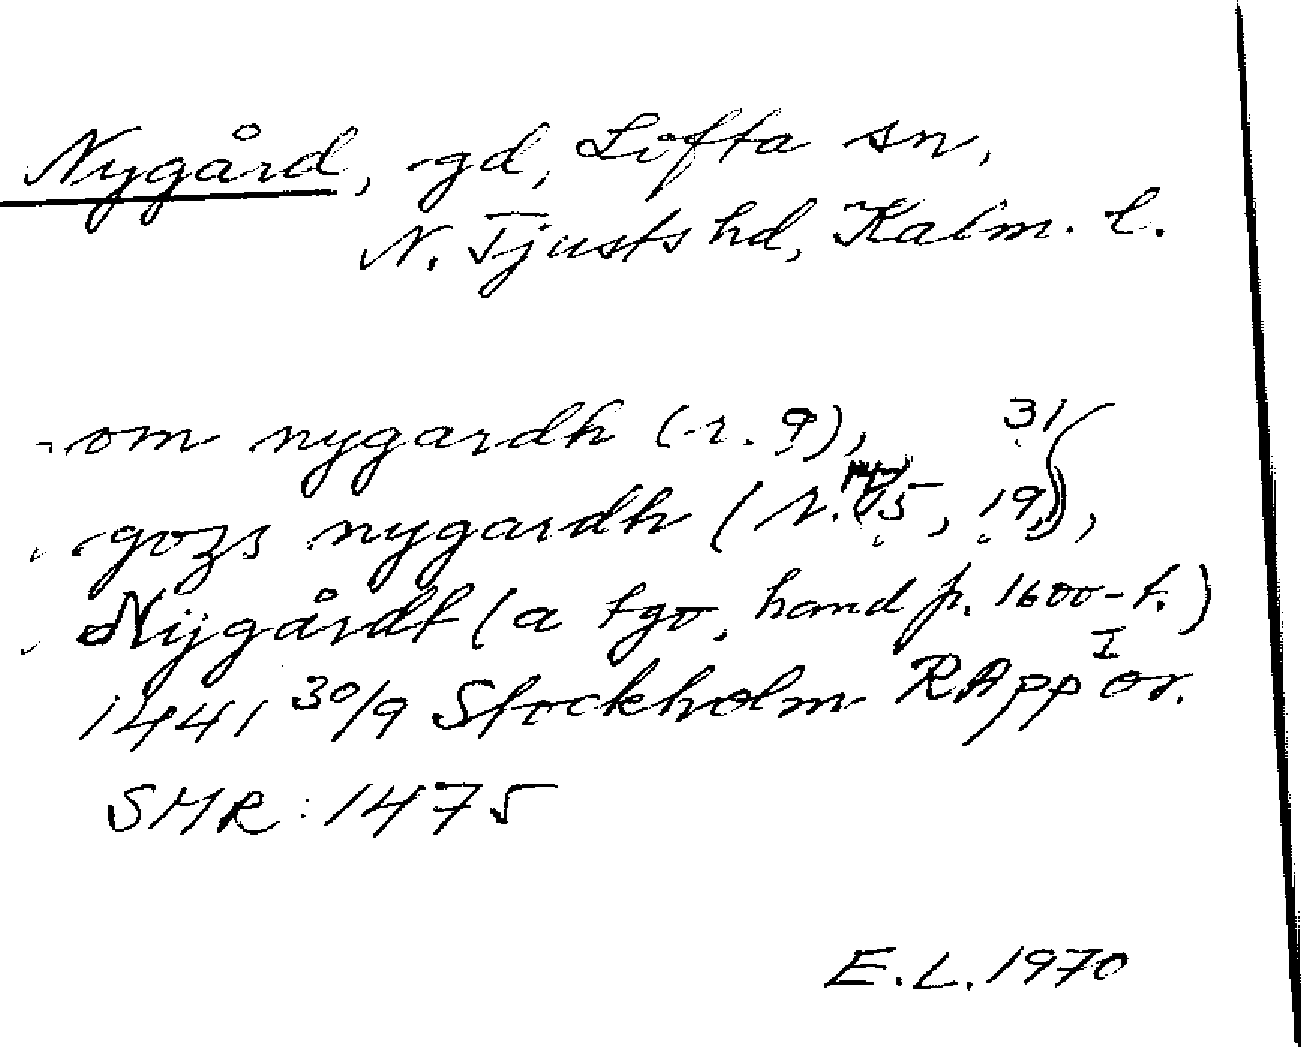 Nygård, gd, Lofta sn,
N. Tjusts hd, Kalm. l.
om nygardh (r. 9),
gozs nygardh (r. 15, 19, 31),
Nijgårdt (a tgo, hand fr. 1600-t.)
1441 30/9 Stockholm RApp I or.
SMR: 1475
E.L. 1970